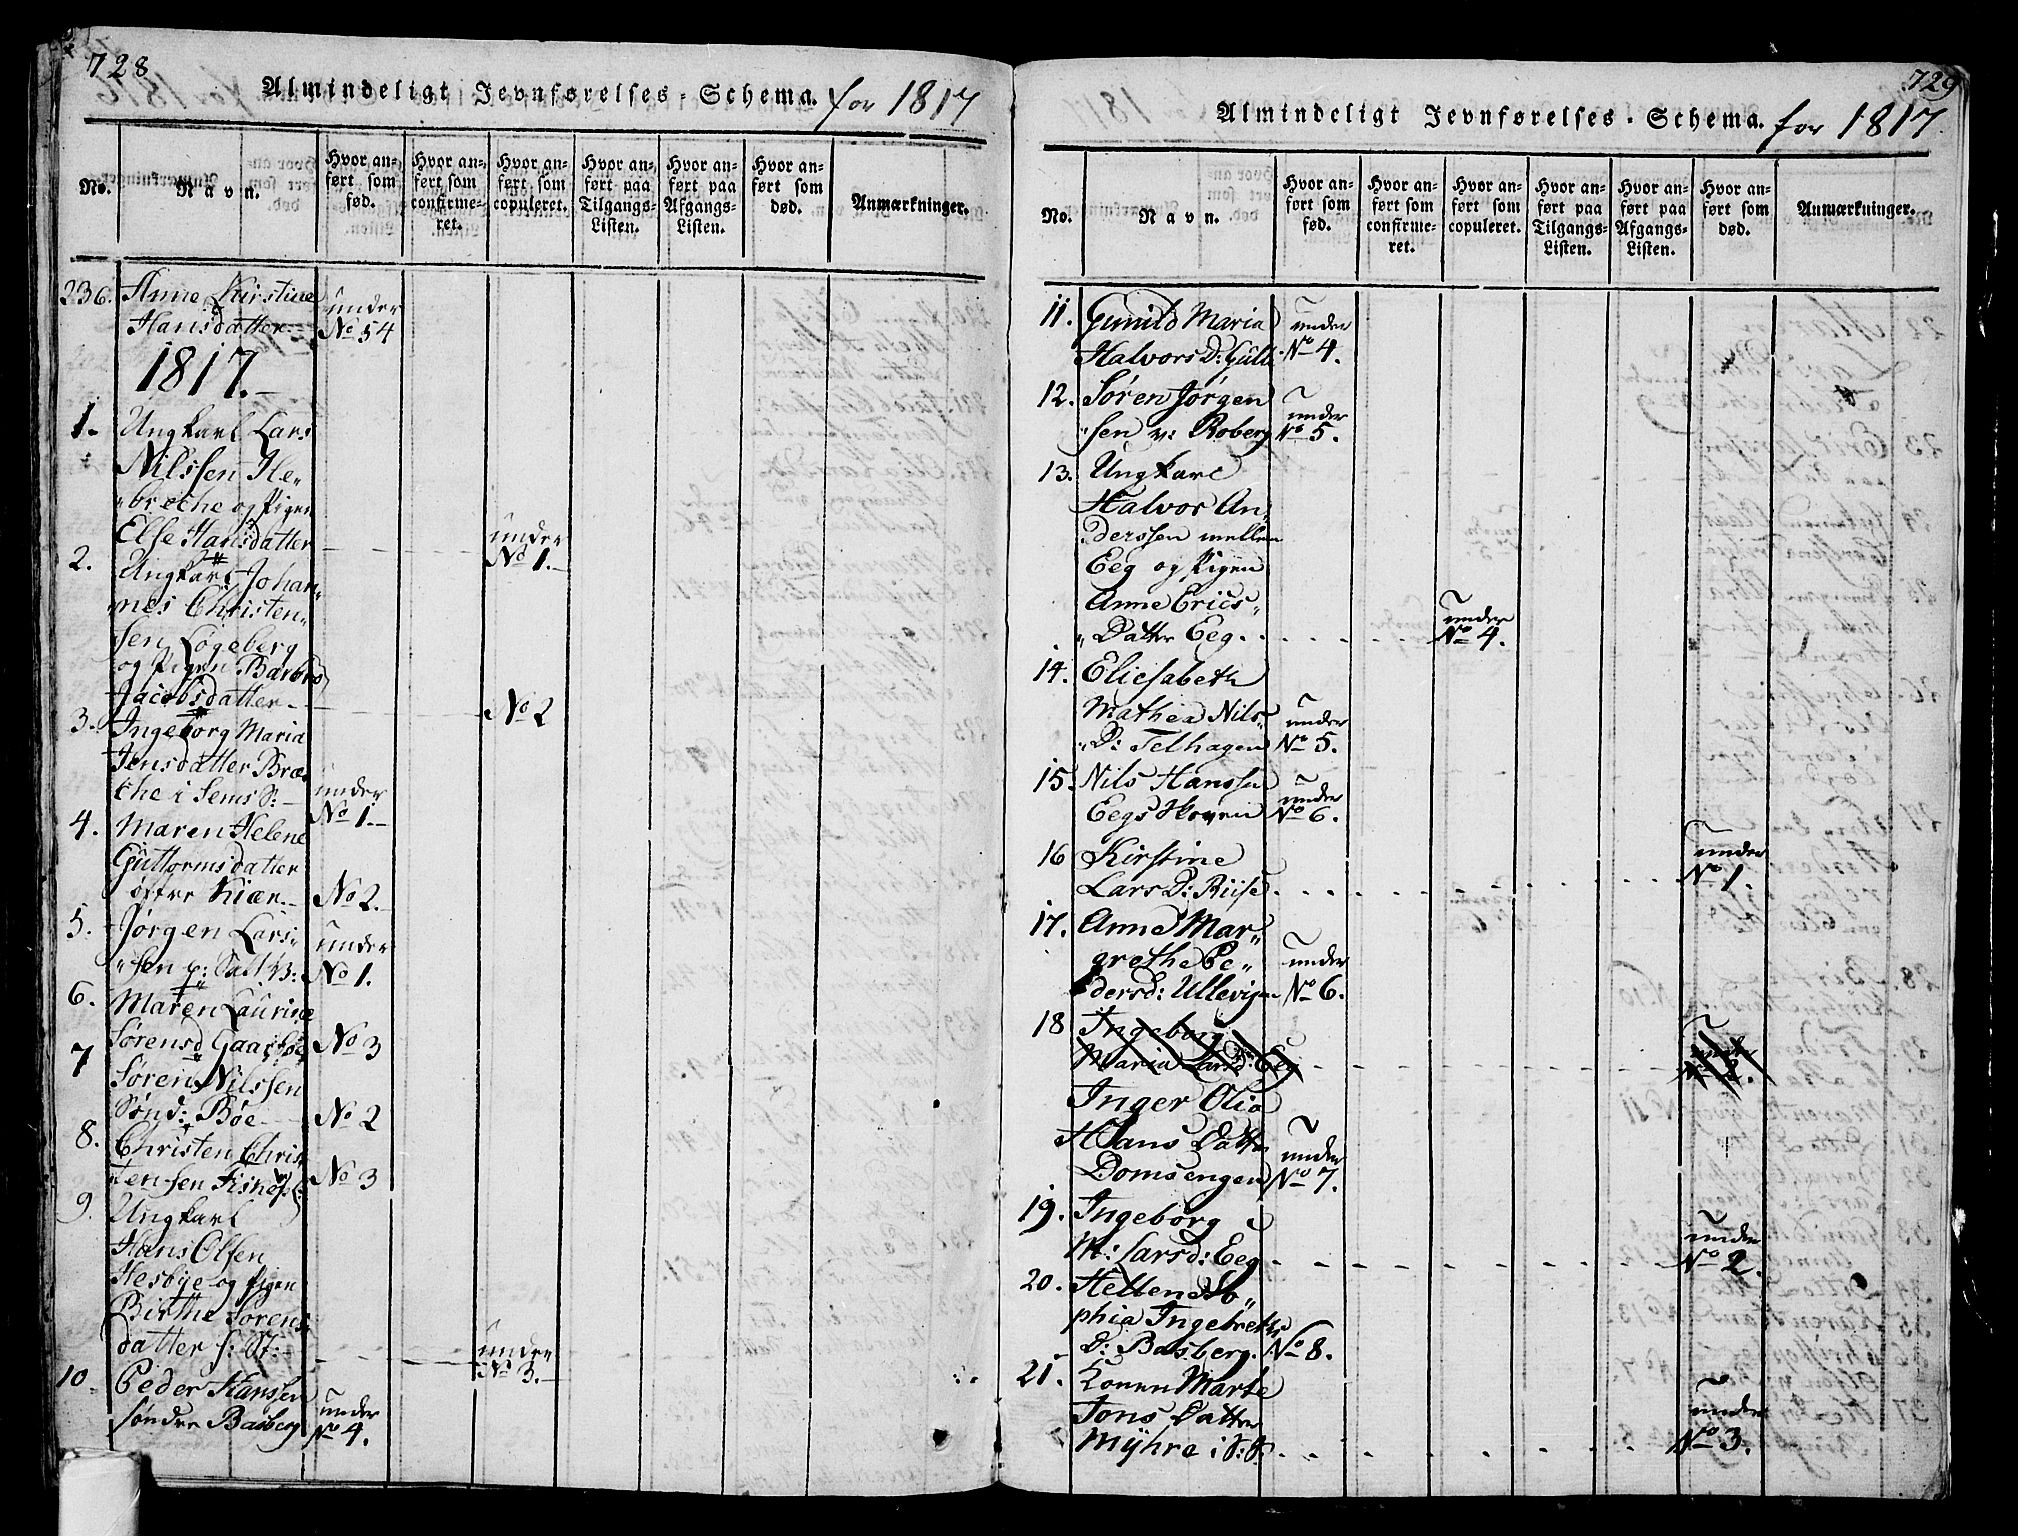 728
Almindeligt Jevnførelses-Schema. for 1817
No.
Navn.
Hvor anført som fød.
Hvor anført som confirmeret.
Hvor anført som copuleret.
Hvor anført paa Tilgangs-Listen.
Hvor anført paa Afgangs-Listen.
Hvor anført som død.
Anmærkninger.
236. Anne Kirstine under
Hansdatter No 54
1817.
1. Ungkarl Lars
Nilssen He„
„breche og Pigen
Else Hansdatter under No 1.
2. Ungkarl Johan„
„nes Christen„
sen Løgeberg
og Pigen Barbro
Jacobsdatter No 2
3. Ingeborg Maria
Jensdatter Bræ„
che i Sems S: under No 1.
4. Maren Helene
Guttormsdatter
øftre Kiær No 2.
5. Jørgen Lars„ under
„sen p: Salt V: No 1.
6. Maren Laurine
Sørensd No 3
7 Søren Nilssen
Sønd: Bøe No 2
8. Christen Chris
tensen No 3
9. Ungkarl
Hans Olsen
Hesbye og Pigen
Birthe Sørens
datter S: St: under No 3.
10 Peder Hanssen under
søndre Basberg No 4.
729
Almindeligt Jevnførelses-Schema. for 1817.
No.
Navn.
Hvor anført som fød.
Hvor anført som confirmeret.
Hvor anført som copuleret.
Hvor anført paa Tilgangs-Listen.
Hvor anført paa Afgangs-Listen.
Hvor anført som død.
Anmærkninger.
11. Gunild Maria under
Halvors D: Gulli No 4.
12. Søren Jørgen under
„sen v: Roberg No 5.
13. Ungkarl
Halvor An„
derssen mellem
Eeg og Pigen
Anne Erics„
„Datter Eeg. under No 4.
14. Eliesabeth
Mathea Nils„ under
„D: Telhagen No 5.
15. Nils Hanssen under
Eegs Skoven No 6.
16 Kirstine under
Lars D: Riise No 1.
17. Anne Mar„
grethe Pe„ under
dersd: Ullevigen No 6.
18 Ingeborg
Maria Larsd: Eeg
Inger Olia
Hans Datter under
Domsengen No 7.
19. Ingeborg under
M: Larsd: Eeg No 2.
20. Hellene So„
phia Ingebreths
D: Basberg. No 8.
21. Konen Marte
Jons Datter under
Myhre i S: S: No 3.